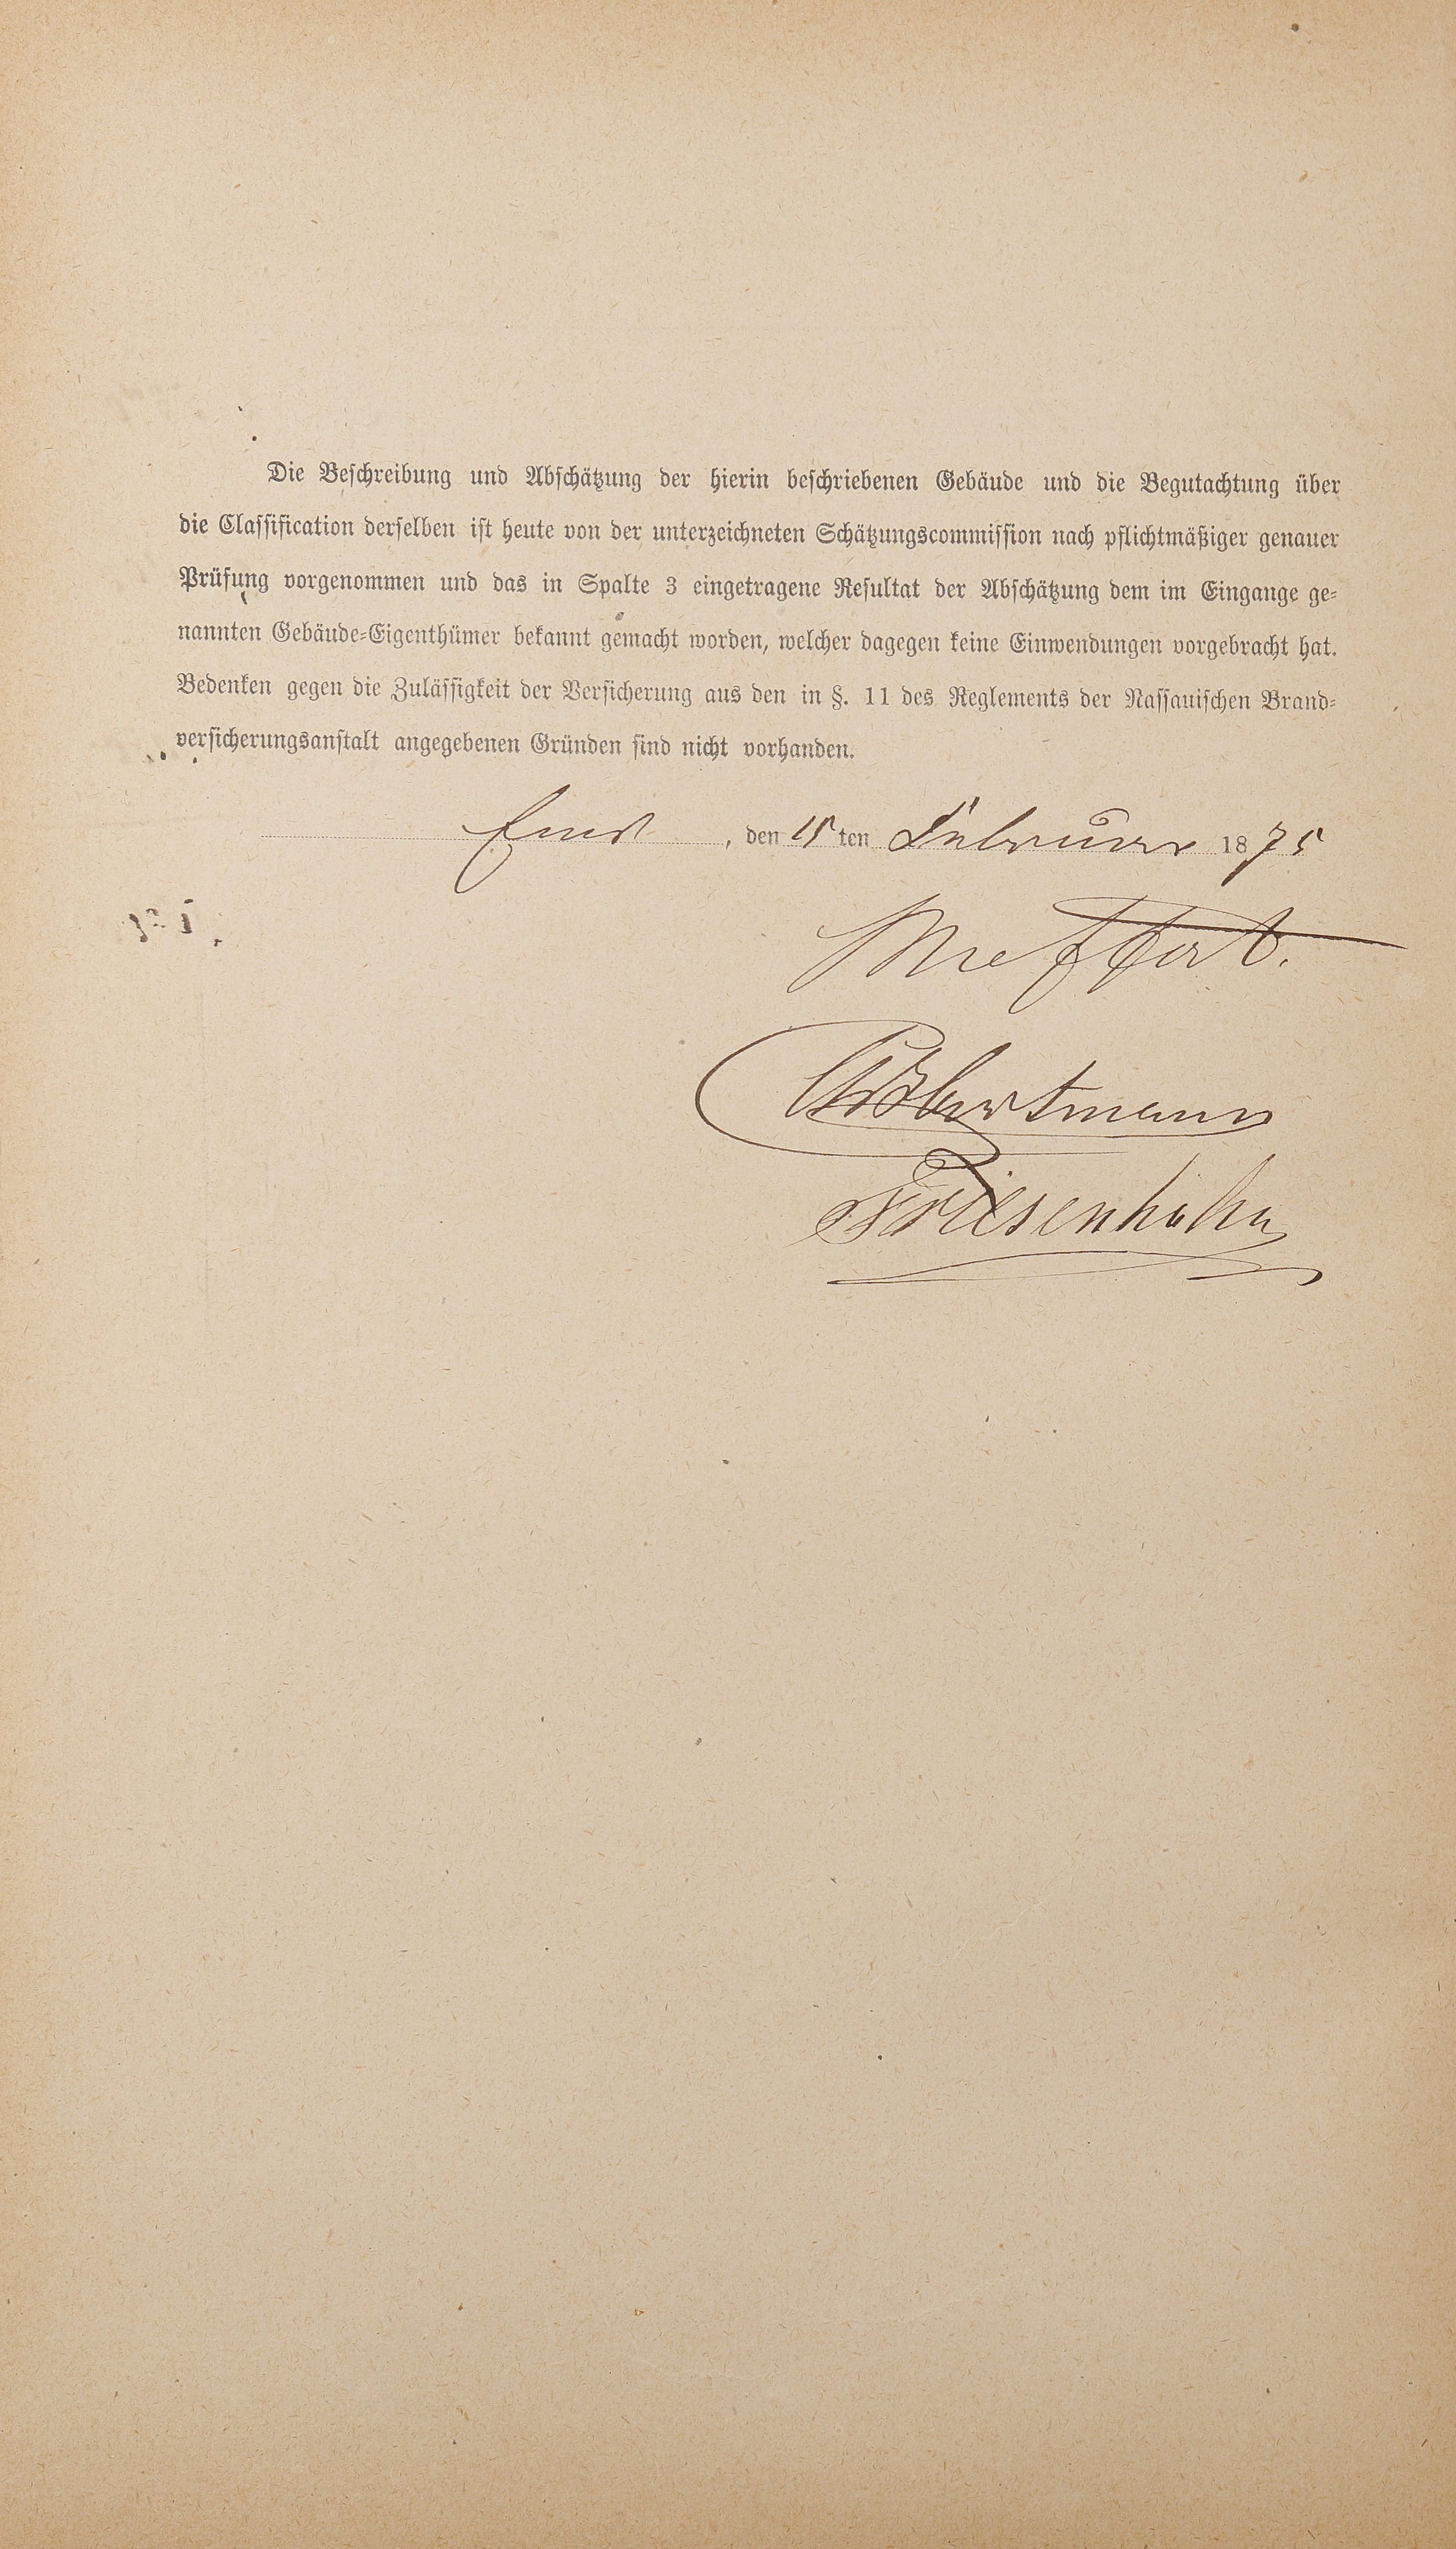 Die Beschreibung und Abschätzung der hierin beschriebenen Gebäude und die Begutachtung über
die Classification derselben ist heute von der unterzeichneten Schätzungscommission nach pflichtmäßiger genauer
Prüfung vorgenommen und das in Spalte 3 eingetragene Resultat der Abschätzung dem im Eingange ge-
nannten Gebäude-Eigenthümer bekannt gemacht worden, welcher dagegen keine Einwendungen vorgebracht hat.
Bedenken gegen die Zulässigkeit der Versicherung aus den in §. 11 des Reglements der Nassauischen Brand-
versicherungsanstalt angegebenen Gründen sind nicht vorhanden.
Ems, den 15ten Februar 1875
Meffert.
Friesenhahn